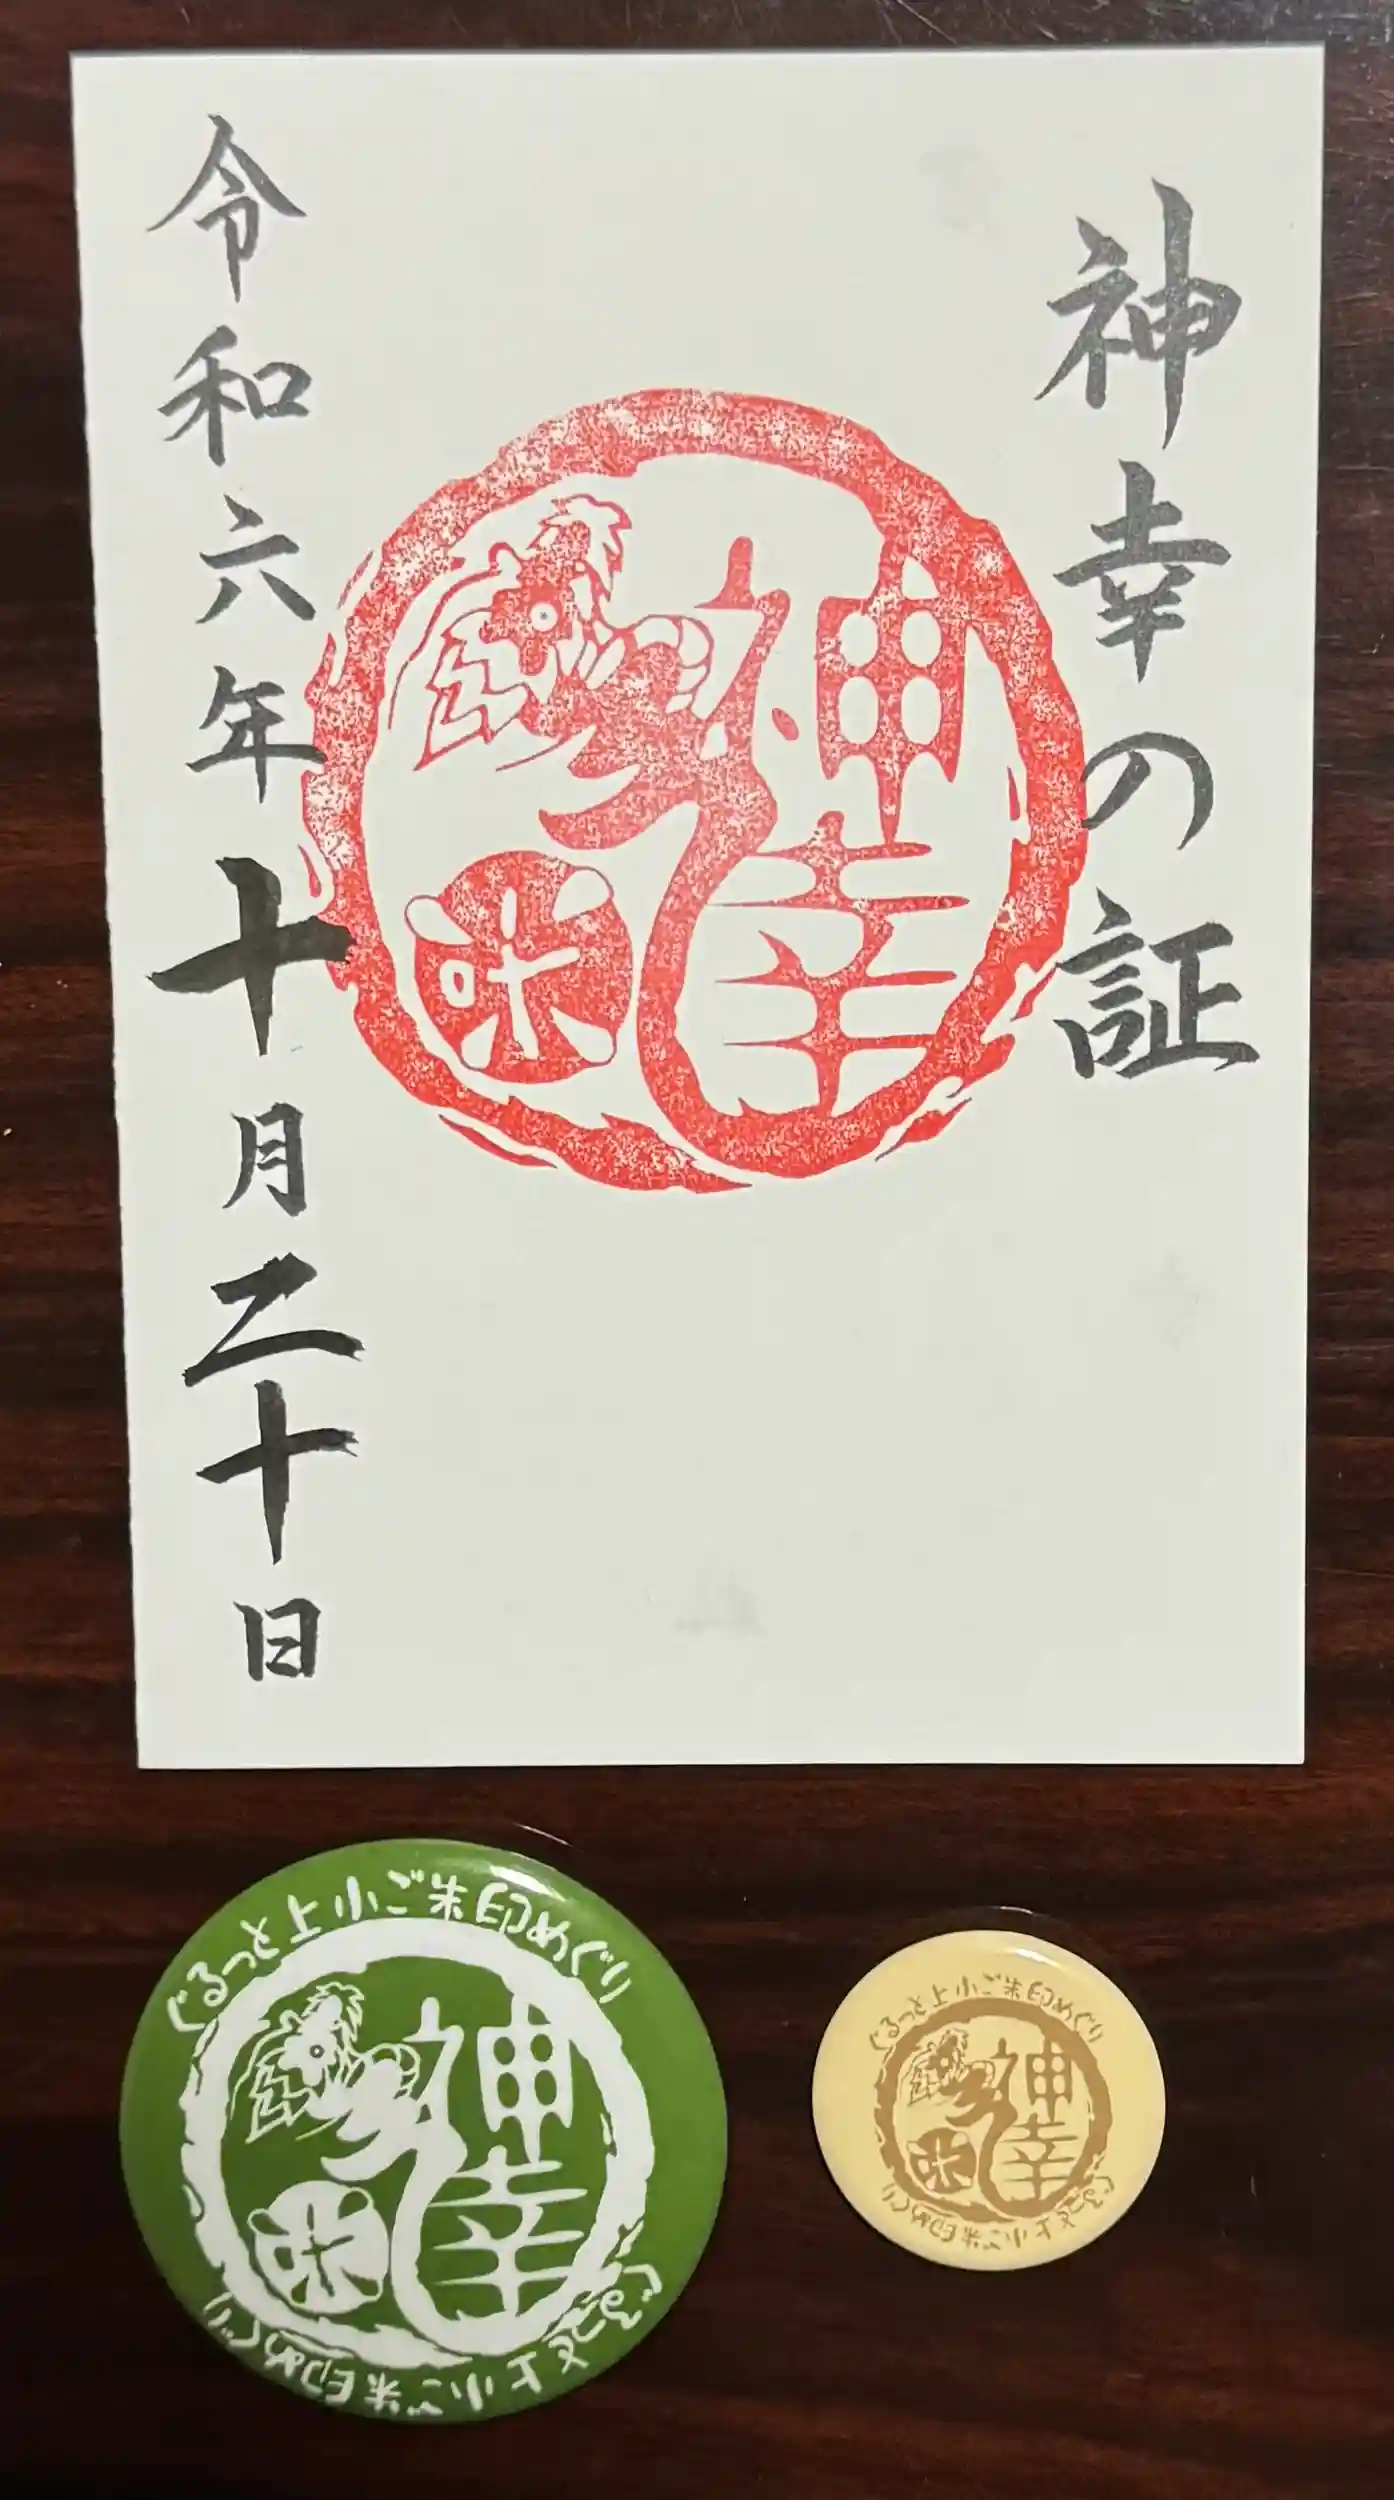 神幸の証
神幸
叶
令和六年十月二十日
ぐるっと上小ご朱印めぐり
神幸
叶
ぐるっと上小ご朱印めぐり
ぐるっと上小ご朱印めぐり
神幸
叶
ぐるっと上小ご朱印めぐり